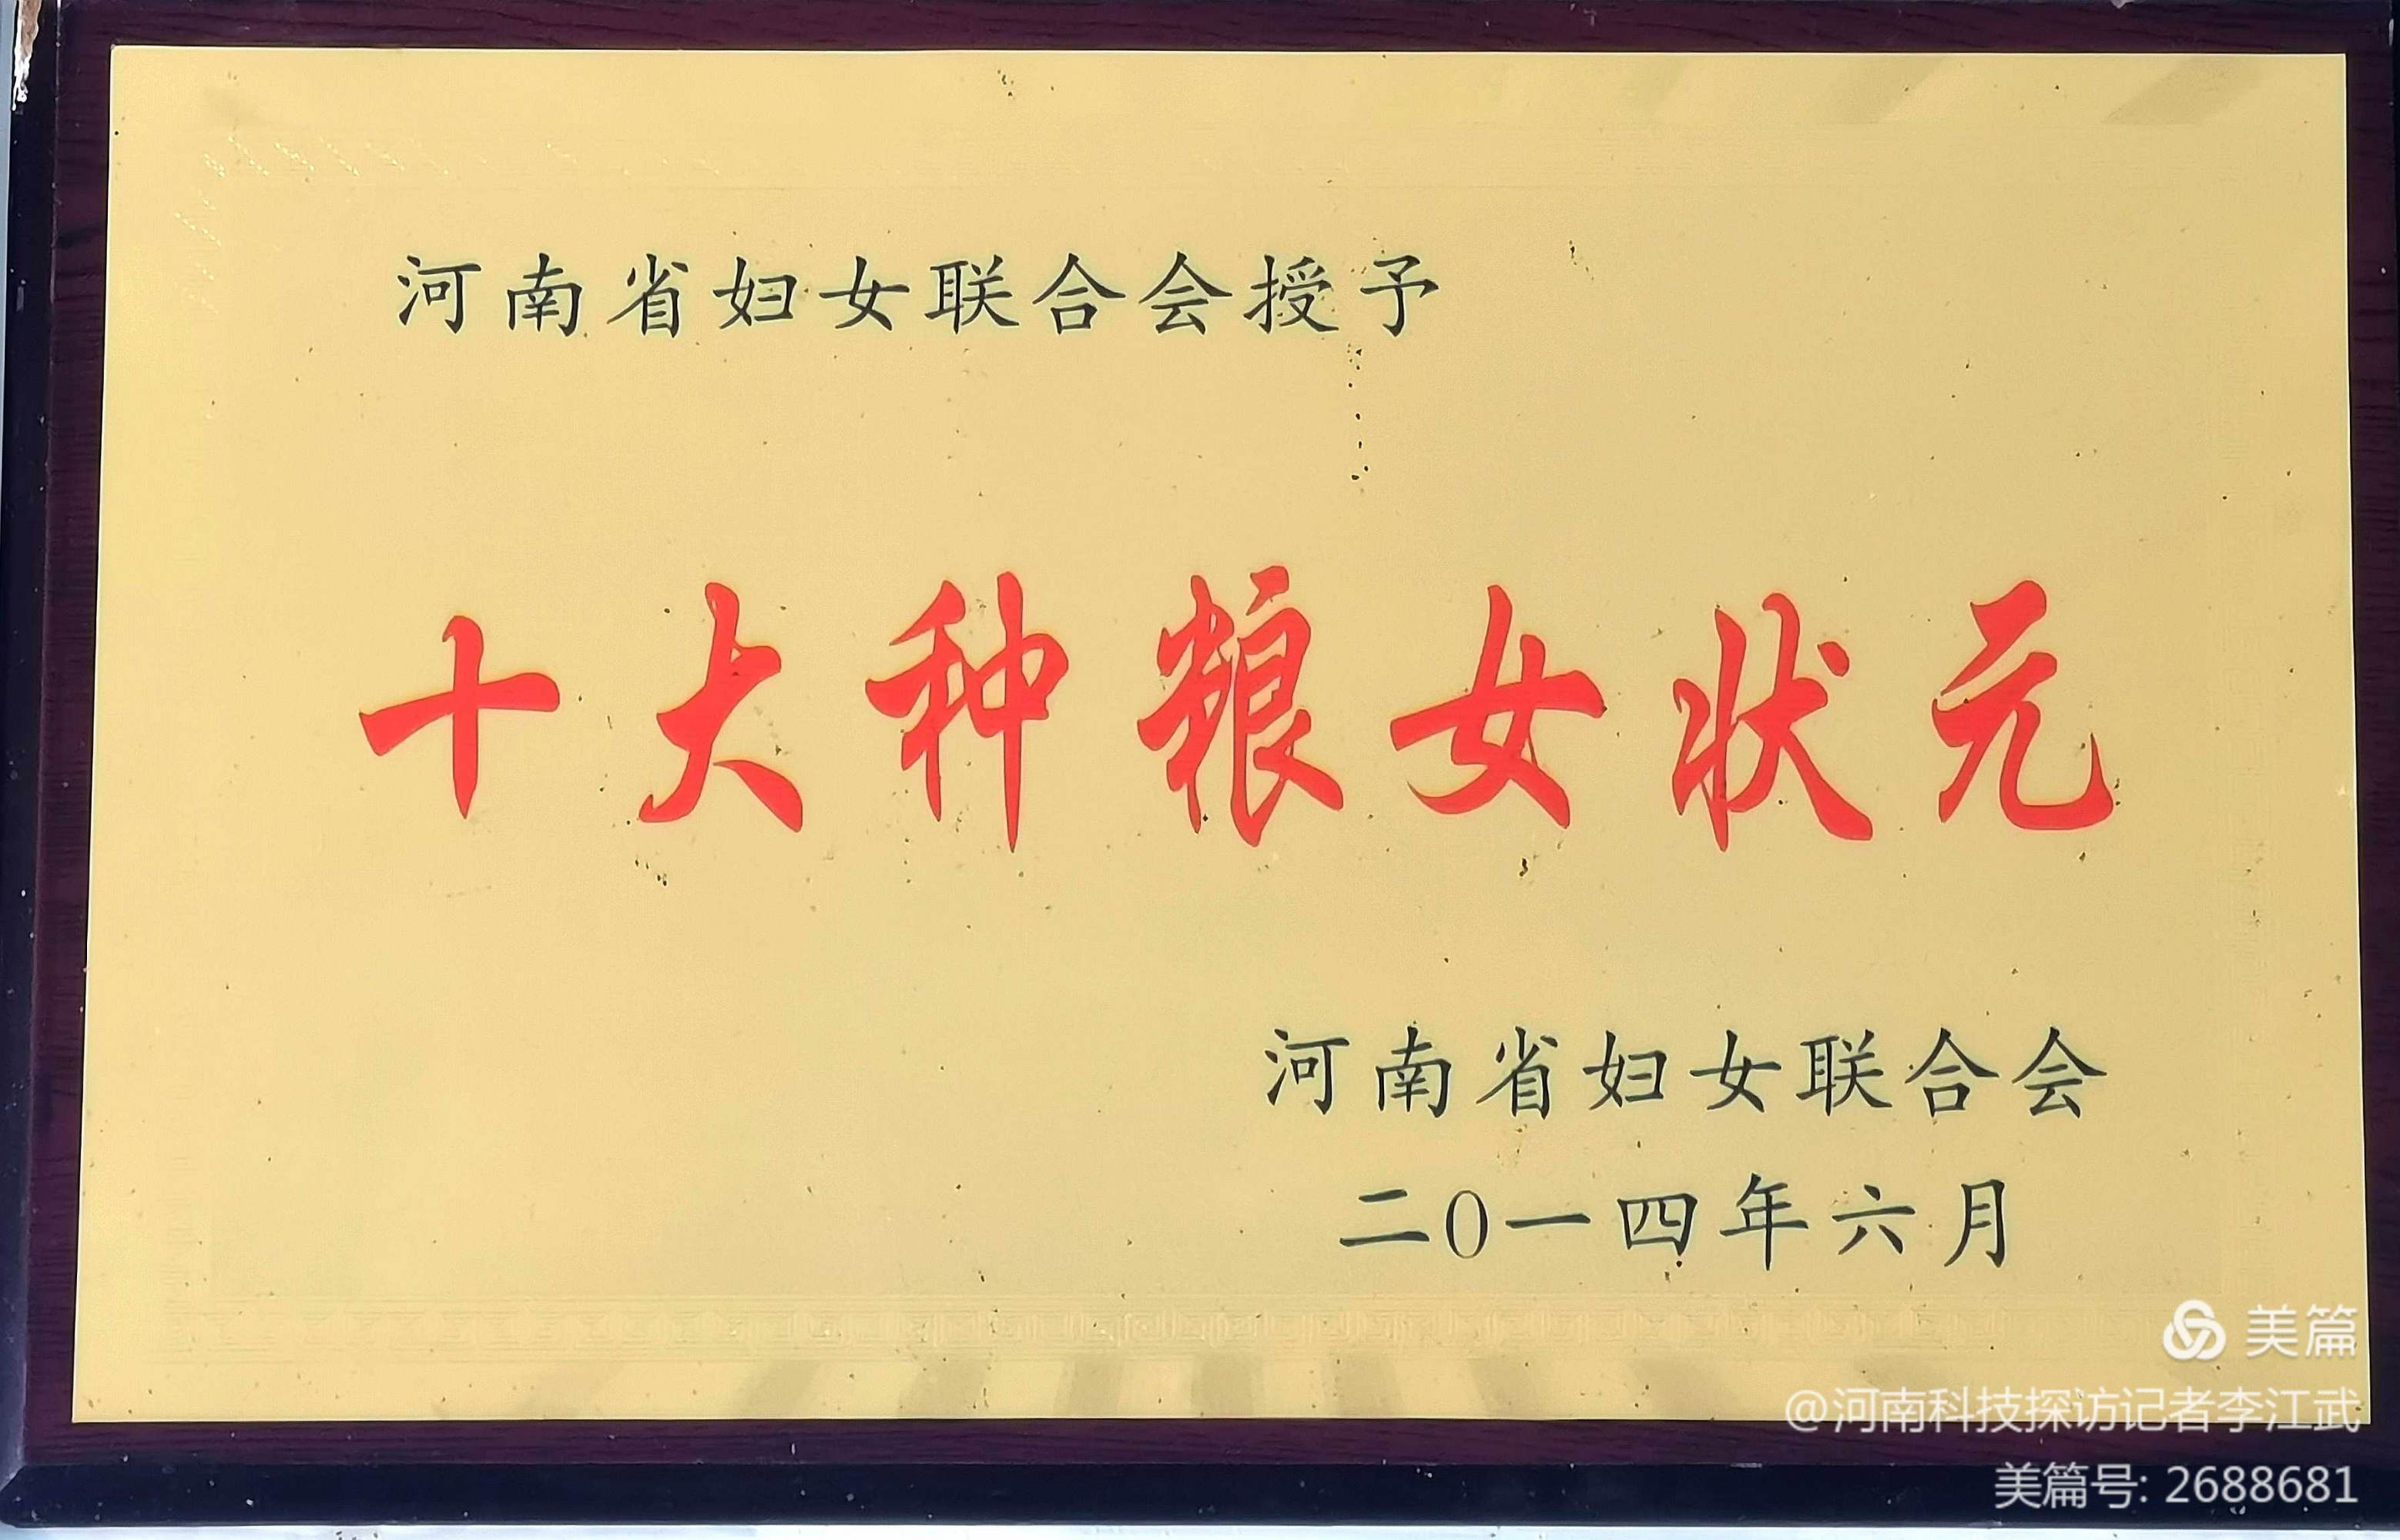 河南省妇女联合会授予
十大种粮女状元
河南省妇女联合会
二0一四年六月
美篇
@河南科技探访记者李江武
美篇号: 2688681